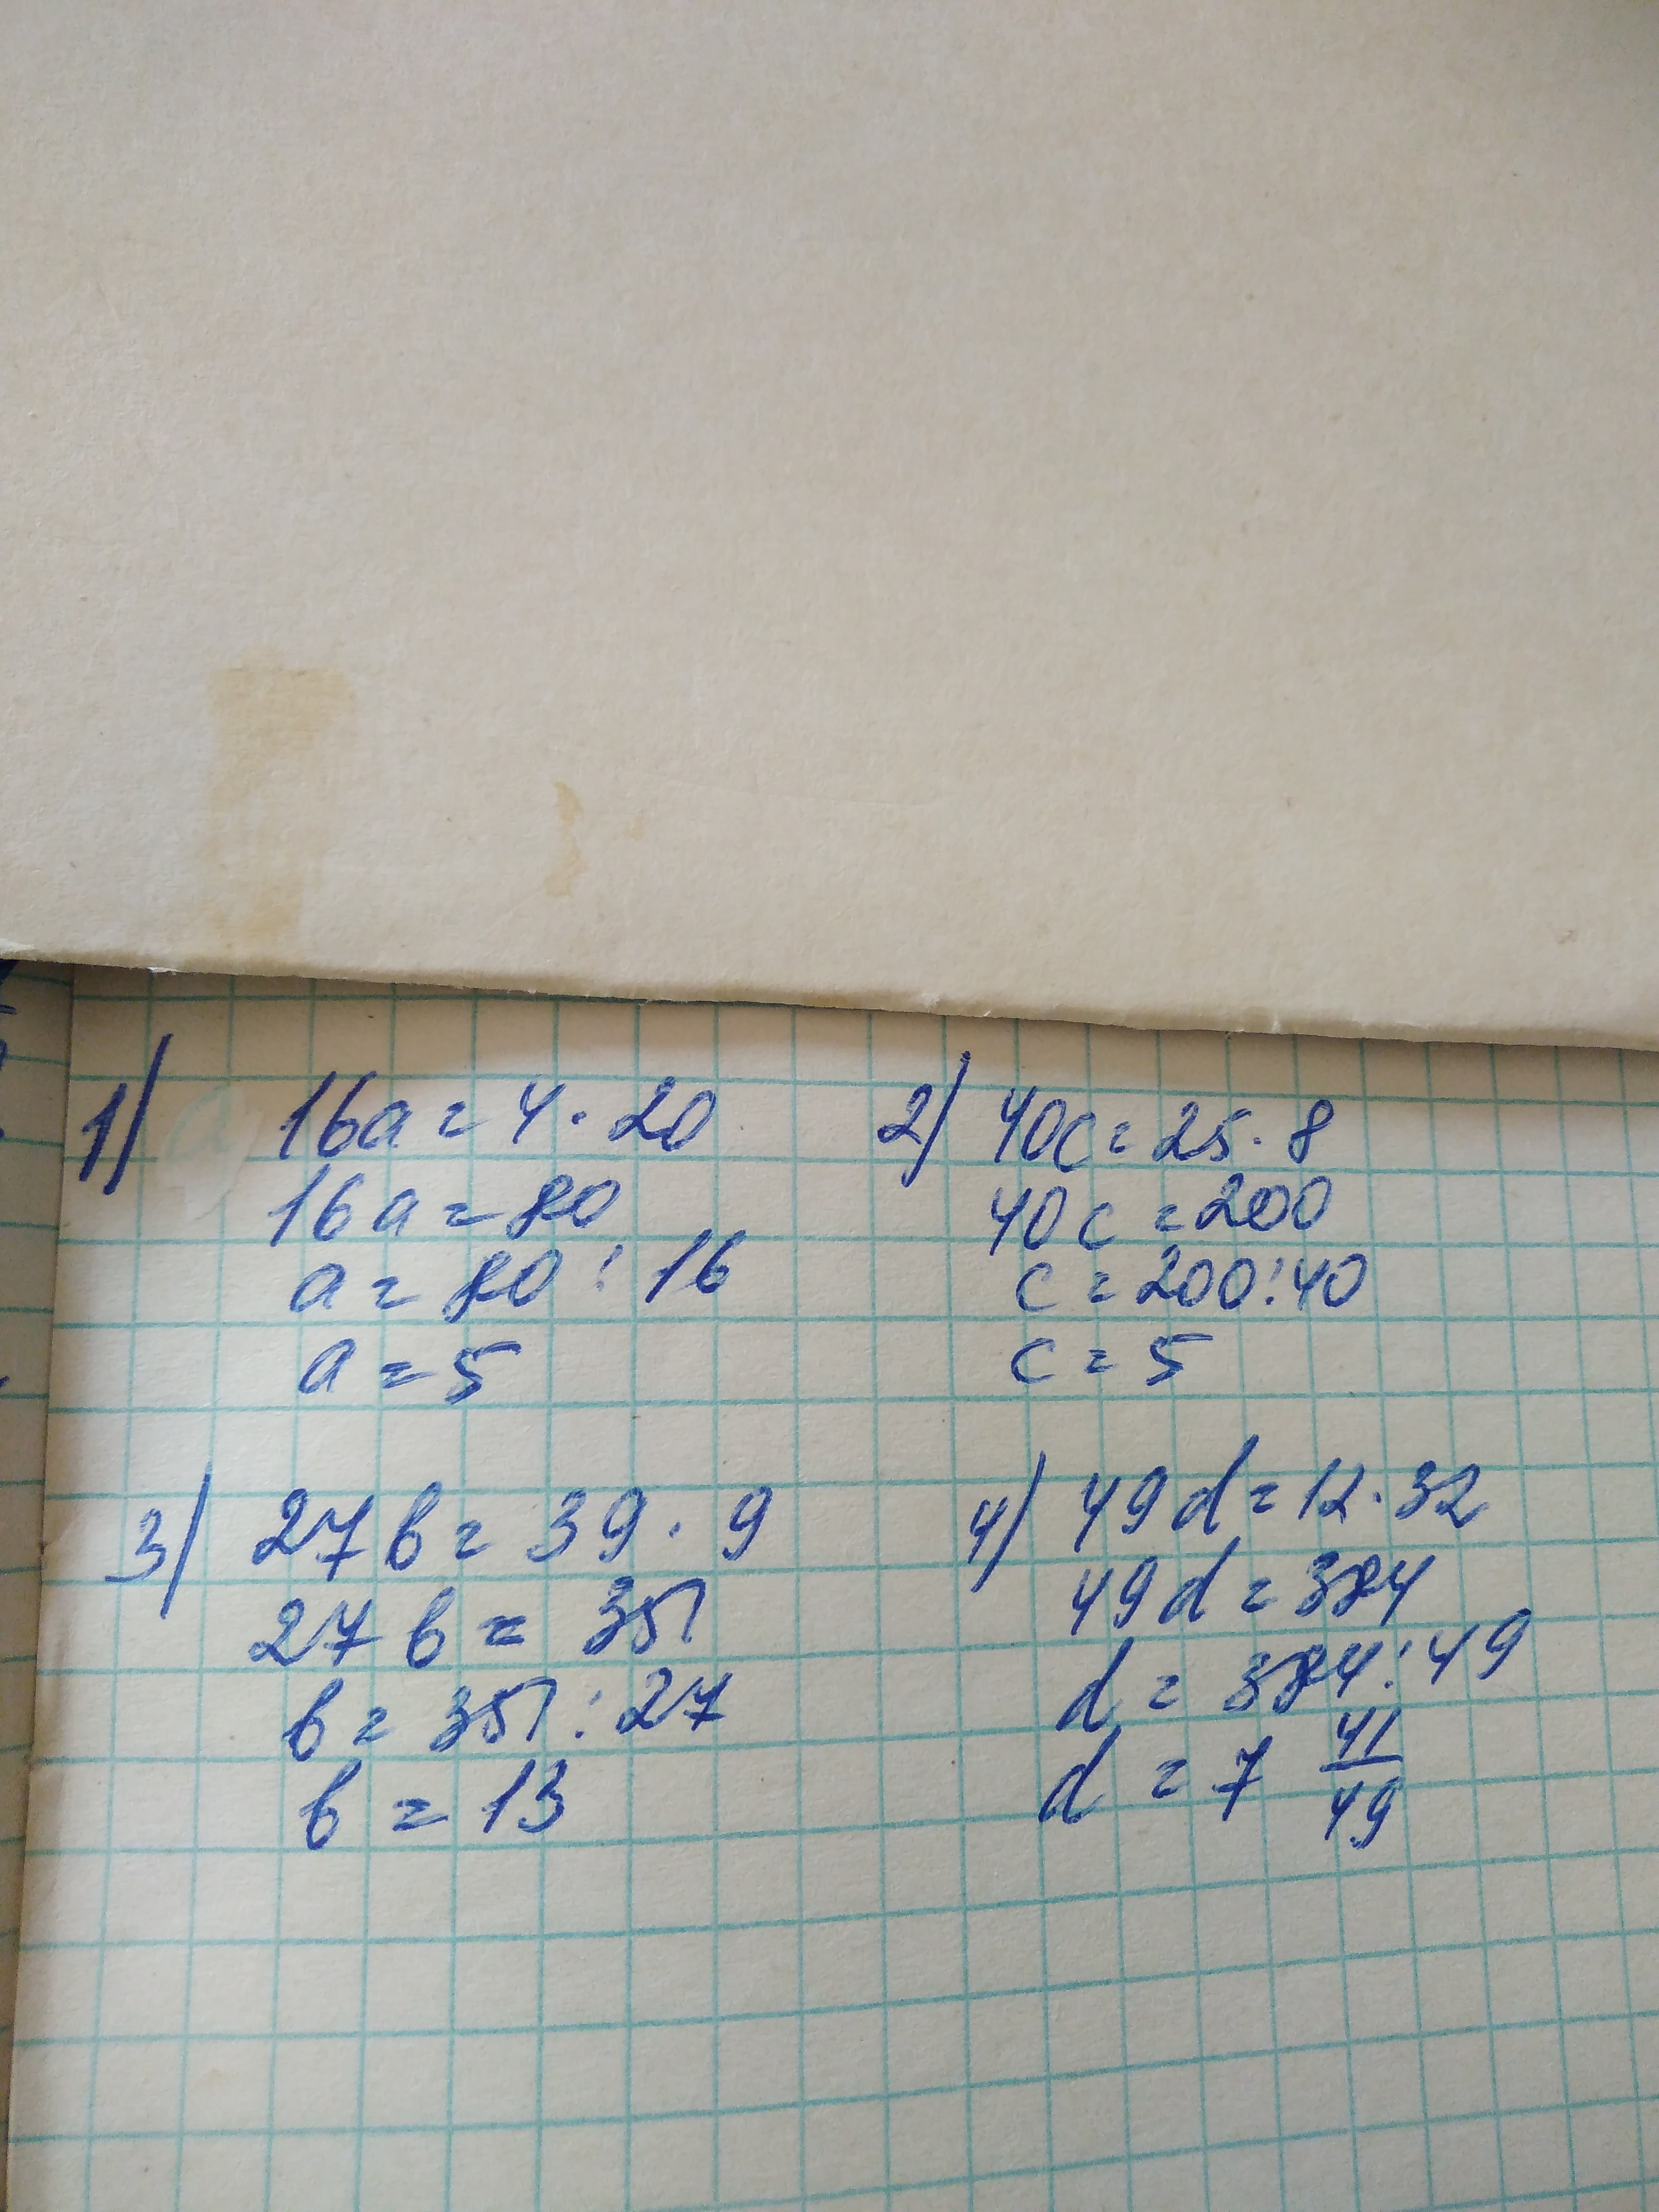 1) 16a = 4 · 20
16a = 80
a = 80 : 16
a = 5
2) 40c = 25 · 8
40c = 200
c = 200 : 40
c = 5
3) 27b = 39 · 9
27b = 351
b = 351 : 27
b = 13
4) 49d = 12 · 32
49d = 384
d = 384 : 49
d = 7 41/49